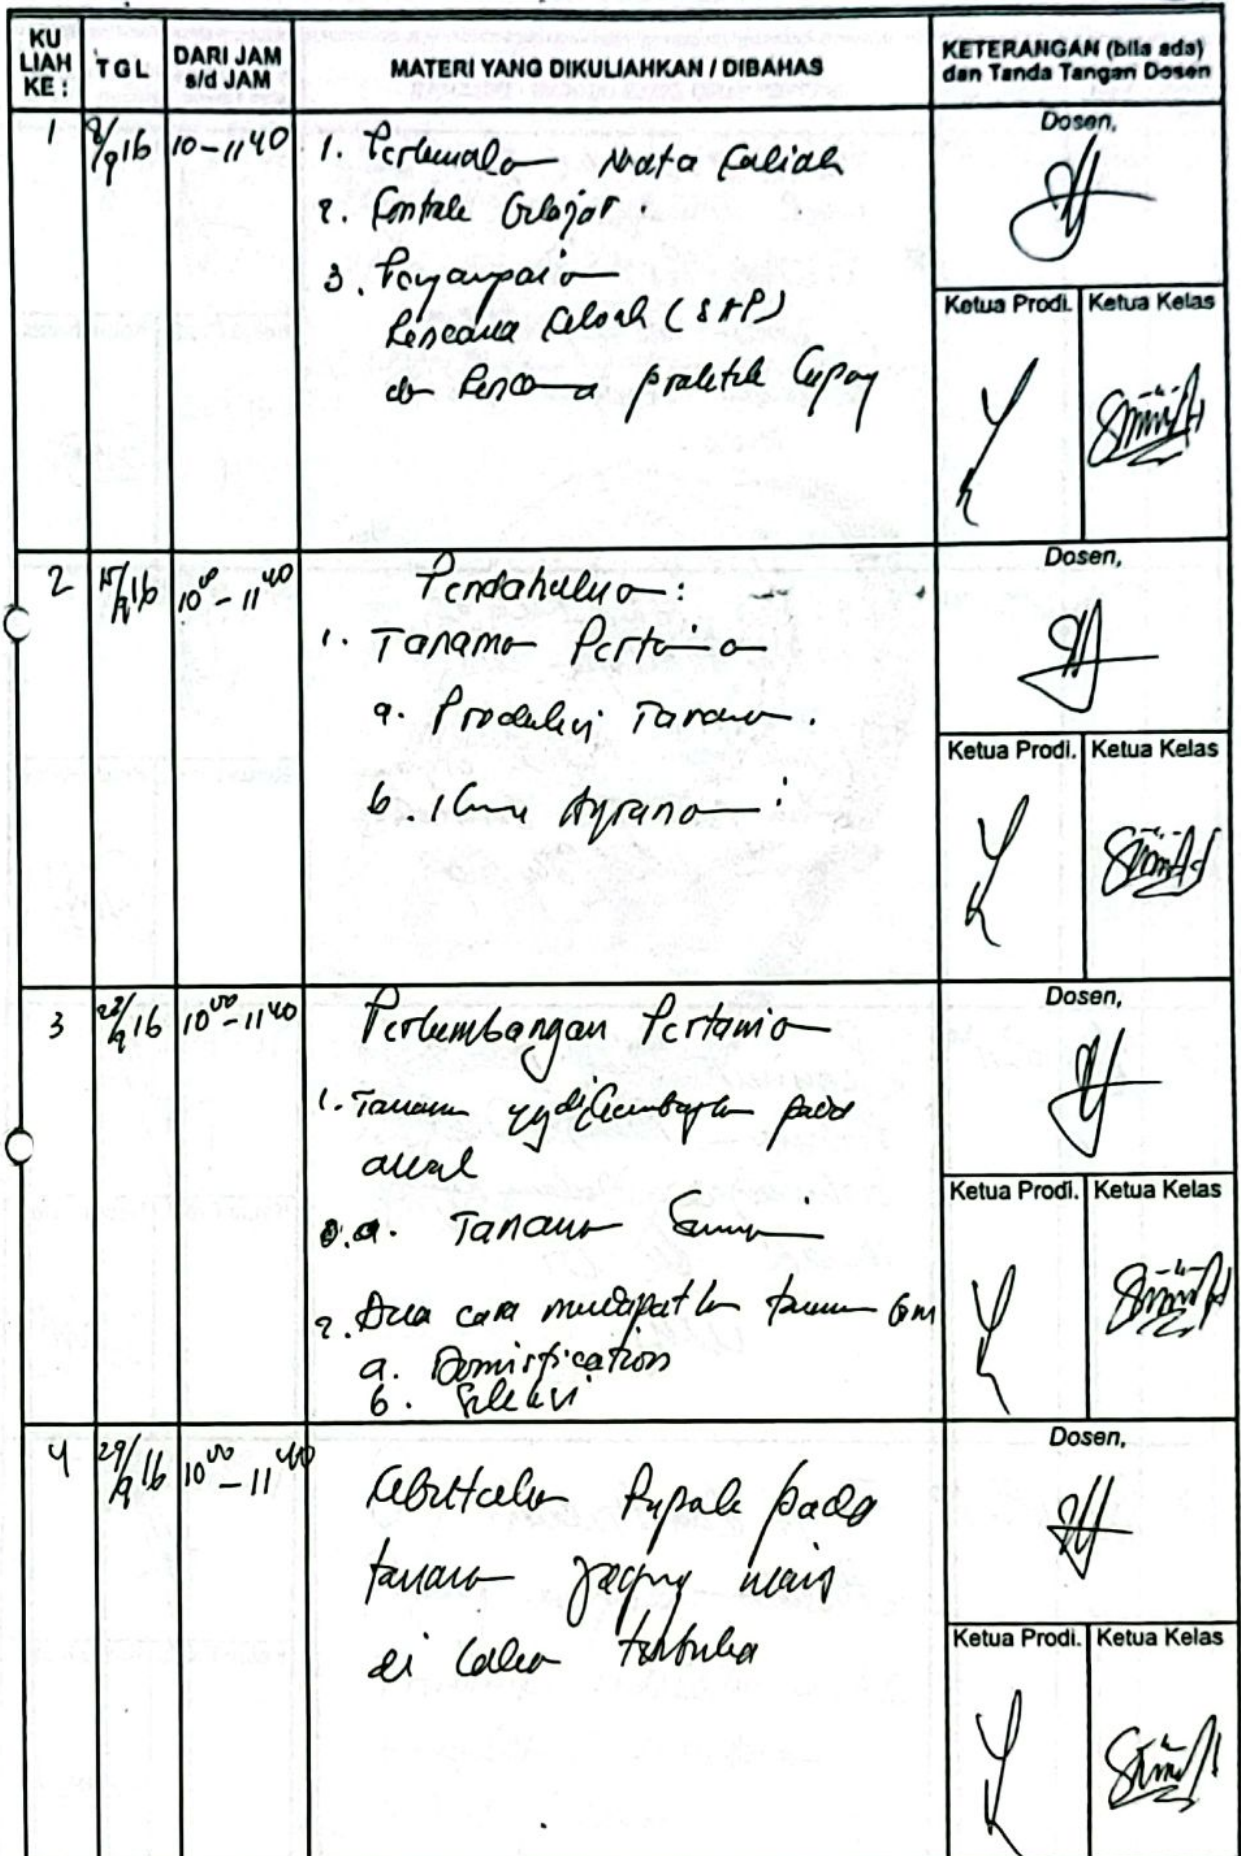 KU LIAH KE :
TGL
DARI JAM s/d JAM
MATERI YANG DIKULIAHKAN / DIBAHAS
KETERANGAN (bila ada) dan Tanda Tangan Dosen
1
8/9 16
10 - 11 40
1. Mata Kuliah
2. Kontrak Belajar.
3.
Rencana Kuliah (SAP)
praktek
Dosen,
Ketua Prodi.
Ketua Kelas
2
15/9 16
10 00 - 11 40
Pendahuluan :
1. Tanaman Pertanian
a. Produksi Tanaman.
b. Ilmu
Dosen,
Ketua Prodi.
Ketua Kelas
3
22/9 16
10 00 - 11 40
Perkembangan Pertanian
1. Tanaman yg dikembangkan pada
awal
a. Tanaman
2. Dua cara mendapatkan
a.
b. Seleksi
Dosen,
Ketua Prodi.
Ketua Kelas
4
29/9 16
10 00 - 11 40
Kebutuhan Pupuk pada
tanaman jagung manis
di lahan terbuka
Dosen,
Ketua Prodi.
Ketua Kelas